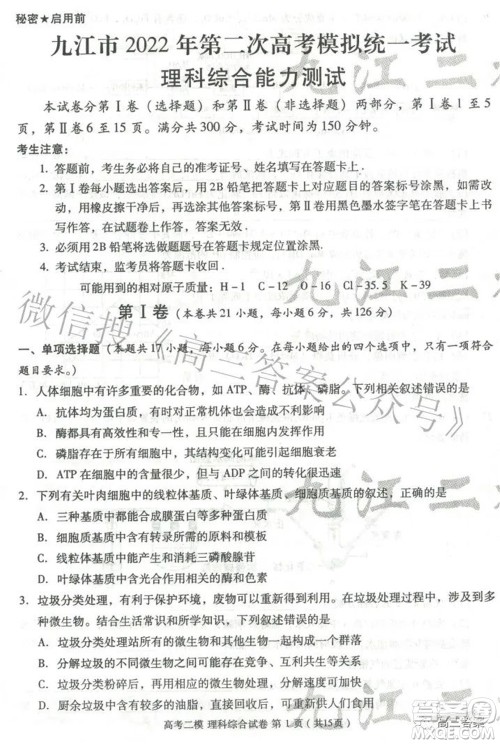 秘密★启用前
九江市 2022 年第二次高考模拟统一考试
理科综合能力测试
本试卷分第Ⅰ卷（选择题）和第Ⅱ卷（非选择题）两部分，第Ⅰ卷 1 至 5
页，第Ⅱ卷 6 至 15 页。满分共 300 分，考试时间为 150 分钟。
考生注意：
1. 答题前，考生务必将自己的准考证号、姓名填写在答题卡上。
2. 第Ⅰ卷每小题选出答案后，用 2B 铅笔把答题卡上对应题目的答案标号涂黑，如需改
动，用橡皮擦干净后，再选涂其它答案标号。第Ⅱ卷用黑色墨水签字笔在答题卡上书
写作答，在试题卷上作答，答案无效。
3. 必须用 2B 铅笔将选做题题号在答题卡规定的位置涂黑。
4. 考试结束，监考员将答题卡收回。
可能用到的相对原子质量：H－1 C－12 O－16 Cl－35.5 K－39
第Ⅰ卷（本卷共 21 小题，每小题 6 分，共 126 分）
一、单项选择题（本题共 17 小题，每小题 6 分。在每小题给出的四个选项中，只有一个选项符合
题目要求。）
1. 人体细胞中有许多重要的化合物，如 ATP、酶、抗体、磷脂。下列相关叙述错误的是
A. 抗体均为蛋白质，有时对正常机体也会产生不良影响
B. 酶都具有高效性，其基本组成单位为氨基酸或核苷酸
C. 磷脂存在于所有细胞中，其元素组成与核酸相同
D. ATP 在细胞中的含量很少，但与 ADP 之间的转化十分迅速
2. 下列有关叶肉细胞中的线粒体基质、叶绿体基质、细胞质基质的叙述，正确的是
A. 三种基质中都能合成膜蛋白
B. 都可为在其中所发生的代谢提供所需的原料和酶
C. 三种基质中都会有磷酸腺苷
D. 三种基质中进行光合作用的是叶绿体基质
3. 垃圾分类处理，有利于保护环境，废物还可重新得到利用。在垃圾分类处理过程中，涉及到多
种微生物。结合生活常识和所学知识，下列叙述错误的是
A. 垃圾分类处理站所有的微生物和其他动植物一起构成一个群落
B. 对分类后的垃圾进行资源化处理，有利于物质循环
D. 厨余垃圾中含有大量的有机物，可以采用微生物技术处理
高考二模 理科综合试卷 第 1 页（共15页）
微信搜《高三答案公众号》
九江二
九江二
九江二
高三答案